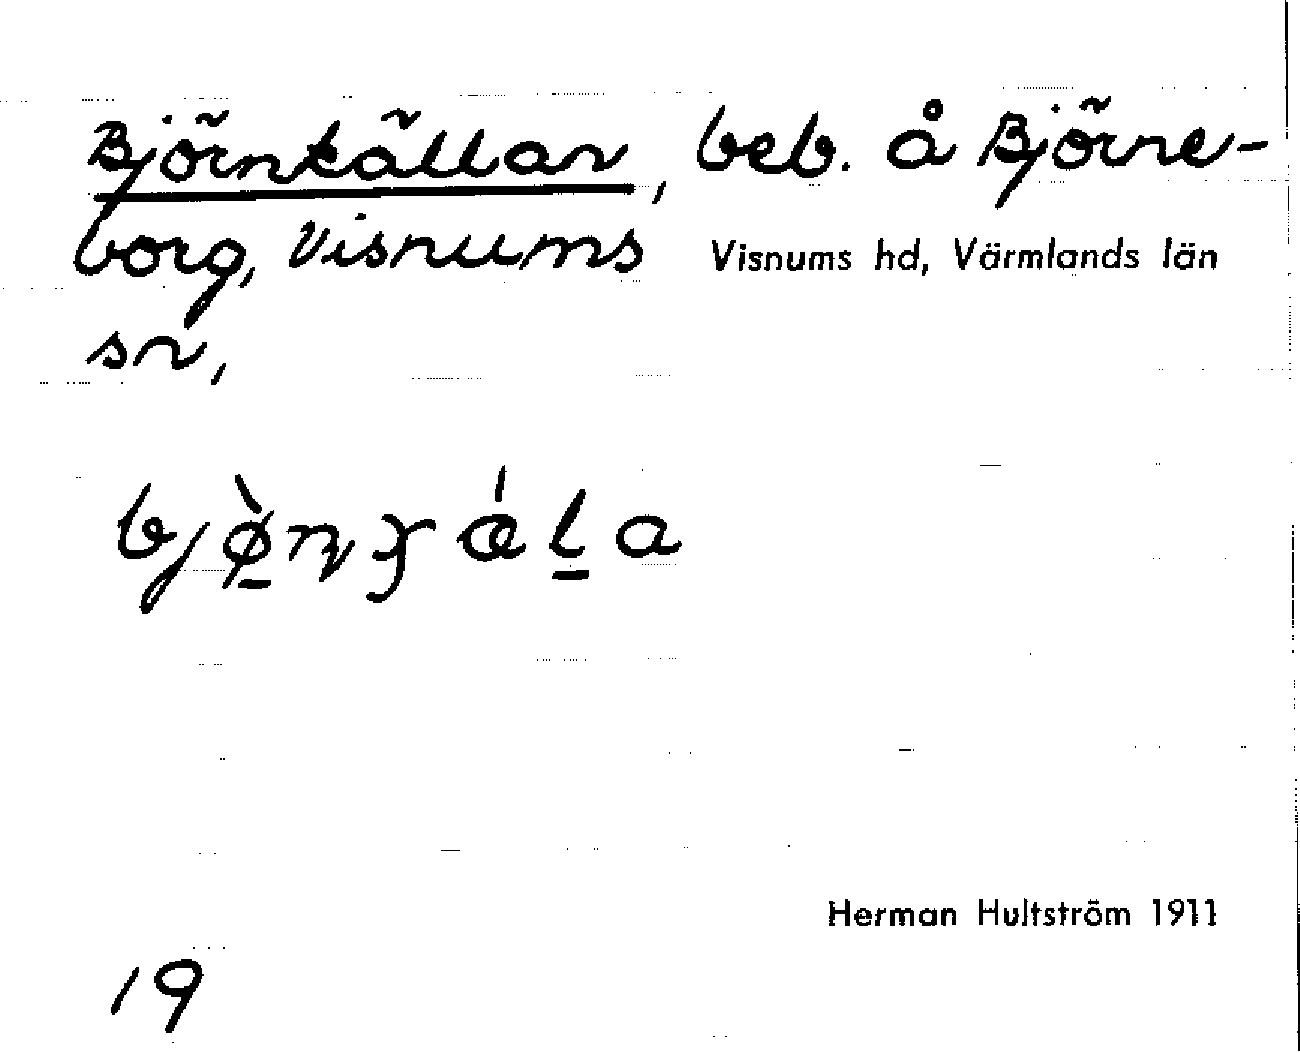 Björnkällar, beb. å Björne-
borg, Visnums Visnums hd, Värmlands län
sn,
Herman Hultström 1911
19